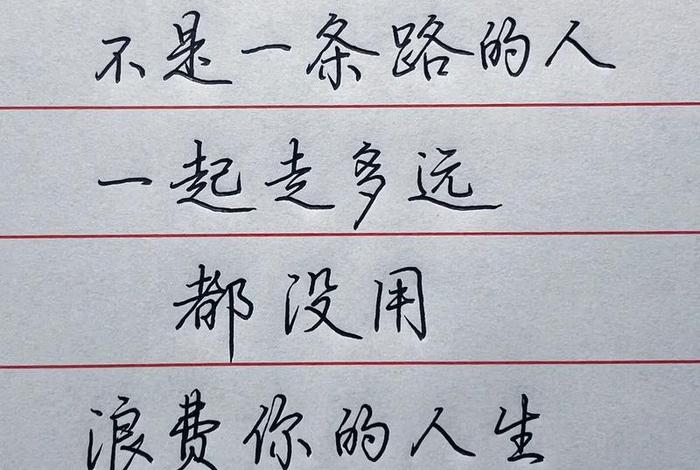 不是一条路的人
一起走多远
都没用
浪费你的人生